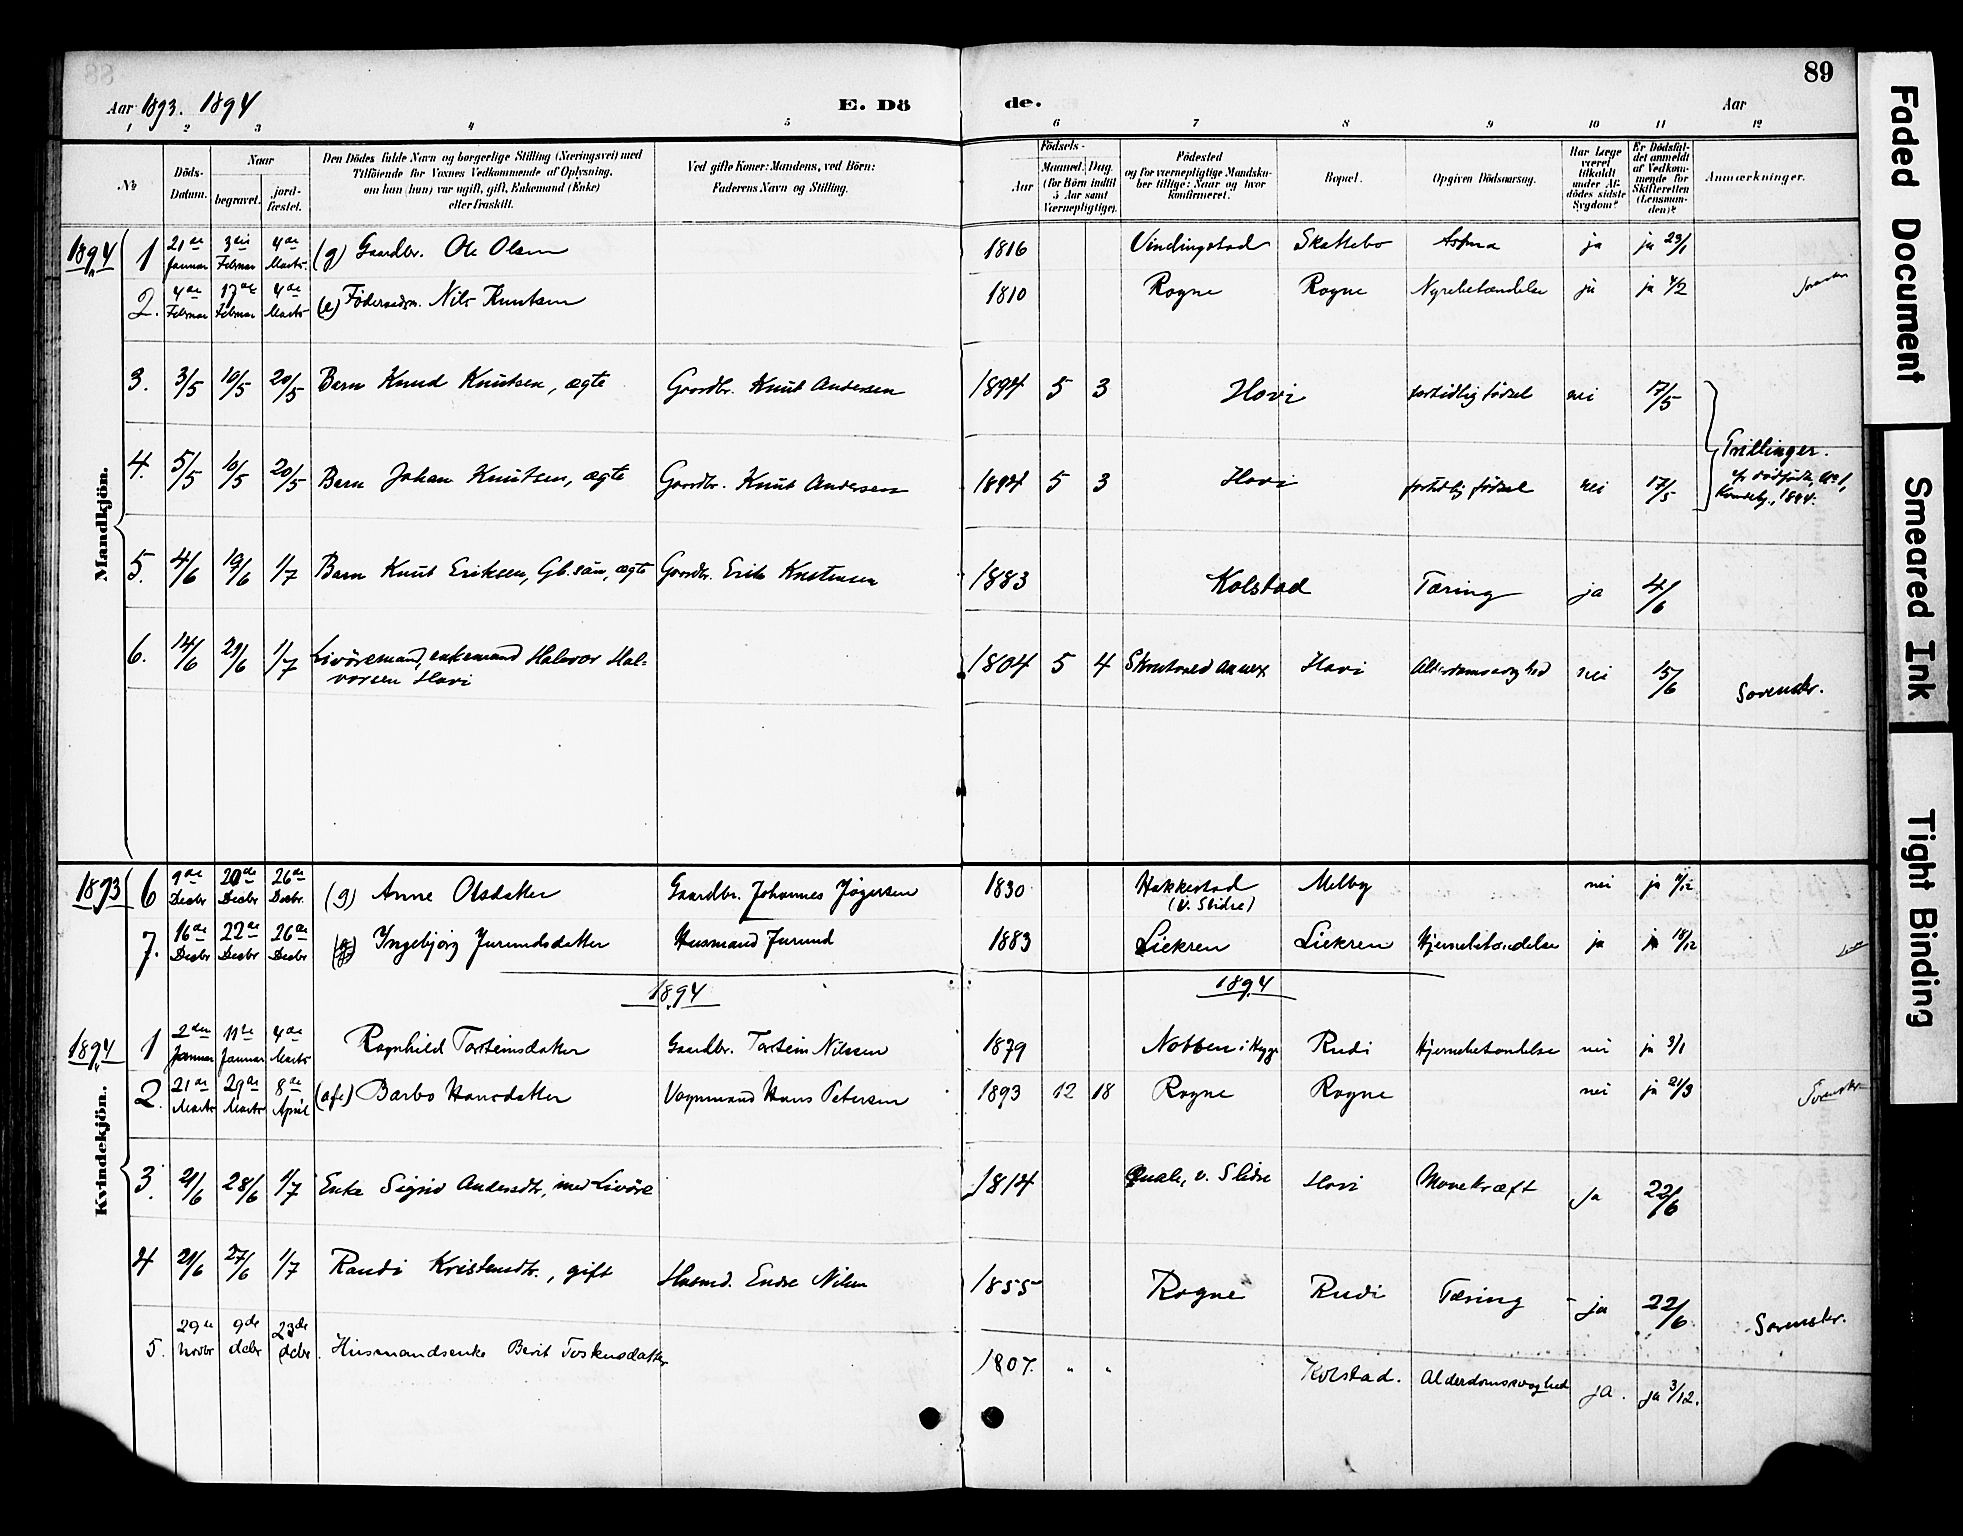 89
Aar 1893. 1894 E. Dö de. Aar
1 2 3 4 5 6 7 8 9 10 11 12
№
Döds-Datum.
Naar
begravet.
jord-fæstet.
Den Dödes fulde Navn og borgerlige Stilling (Næringsvei) med
Tilföiende for Voxnes Vedkommende af Oplysning,
om han (hun) var ugift, gift, Enkemand (Enke)
eller fraskilt.
Ved gifte Koner: Mandens, ved Börn:
Faderens Navn og Stilling.
Födsels-
Aar
Maaned. Dag.
(for Börn indtil
5 Aar samt
Værnepligtige).
Födested
og for værnepligtige Mandsku-
ber tillige: Naar og hvor
konfirmeret.
Bopæl.
Opgiven Dödsaarsag.
Har Læge
været
tilkaldt
under Af-
dödes sidste
Sygdom?
Er Dödsfal-
det anmeldt
af Vedkom-
mende for
Skifteretten
(Lensman-
den)?
Anmærkninger.
Mandkjön.
1894 1 21de Januar 3die Februar 4de Marts (g) Gaardbr. Ole Olsen 1816 Vindingstad Skattebo Astma ja ja 23/1
2. 4de Februar 17de Februar 4de Marts (e) Föderaadsm. Nils Knutsen 1810 Rogne Rogne Nyrebetændelse ja ja 4/2
3. 3/5 10/5 20/5 Barn Knud Knutsen, ægte Gaardbr. Knut Andersen 1894 5 3 Hovi fortidlig födsel nei 17/5
4. 5/5 10/5 20/5 Barn Johan Knutsen, ægte Gaardbr. Knut Andersen 1894 5 3 Hovi fortidlig födsel nei 17/5
Trillinger.
cfr dödfödte, No 1,
Kvindekj., 1894.
5. 4/6 19/6 1/7 Barn Knut Eriksen, Gb. sön, ægte Gaardbr. Erik Kristensen 1883 Kolstad Tæring ja 4/6
6. 14/6 21/6 1/7 Livöremand, enkemand Halvor Hal-
vorsen Hovi 1804 5 4 Skrutvold annex Hovi Alderdomssvaghed nei 15/6
Sorenskr.
Kvindekjön.
1893 6 9de Decbr 20de Decbr 26de Decbr. (g) Anne Olsdatter Gaardbr. Johannes Jögersen 1830 Hakkestad
(V. Slidre) Melby nei ja 9/12
7. 16de Decbr 22de Decbr 26de Decbr Ingebjörg Jurundsdatter Husmand Jurund 1883 Liekren Liekren Hjernebetændelse ja ja 18/12
1894 1894
1894 1 2den Januar 11te Januar 4de Marts Ragnhild Torsteinsdatter Gaardbr. Torstein Nilssen 1879 Nobben i Hegge Rudi Hjernebetændelse nei ja 3/1
2. 21de Marts 29de Marts 8de April Barbo Hansdatter Vognmand Hans Petersen 1893 12 18 Rogne Rogne nei ja 21/3
Sorenskr.
3. 21/6 28/6 1/7 Enke Sigrid Andersdtr, med Livöre 1814 Quale, v. Slidre Hovi Mavekræft Ja 22/6
4 21/6 27/6 1/7 Randi Kristensdtr., gift Husmd. Endre Nilsen 1855 Rogne Rudi Tæring ja 22/6
Sorenskr.
5. 29de Novbr 9de decbr 23de decbr. Husmandsenke Berit 1807. " " Kolstad. Alderdomssvaghed ja. ja 3/12.
Faded Document
Smeared Ink
Tight Binding